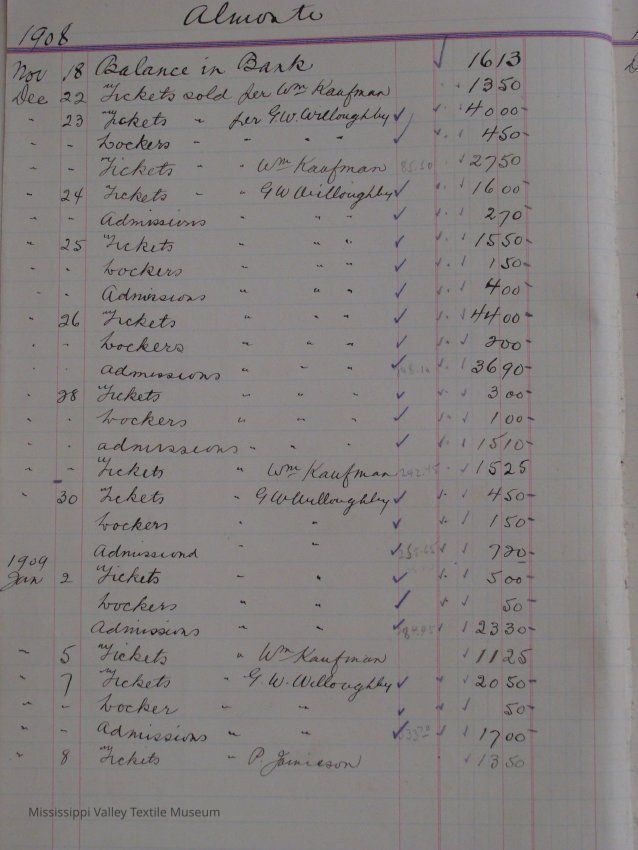 Almonte
1908
Nov 18 Balance in Bank ✓ 16 13
Dec 22 Tickets sold per Wm Kaufman 13 50
" 23 Tickets " per G.W. Willoughby ✓ 40 00
" " Lockers " " " ✓ 4 50
" " Tickets " " Wm Kaufman 27 50
" 24 Tickets " " G W Willoughby ✓ 16 00
" " Admissions " " " ✓ 2 70
" 25 Tickets " " ✓ 15 50
" " Lockers " " ✓ 1 50
" " Admissions " " " ✓ 4 00
" 26 Tickets " " " ✓ 44 00
" " Lockers " " " ✓ 2 00
" " admissions " " " ✓ 36 90
" 28 Tickets " " " ✓ 3 00
" " Lockers " " " ✓ 1 00
" " admissions " " " ✓ 15 10
" " Tickets " Wm Kaufman 15 25
" 30 Tickets " G W Willoughby ✓ 4 50
Lockers " " ✓ 1 50
Admissiond " " ✓ 7 20
1909
Jan 2 Tickets " " ✓ 5 00
Lockers " " ✓ 50
Admissions " " ✓ 23 30
" 5 Tickets " Wm Kaufman 11 25
" 7 Tickets " G.W. Willoughby ✓ 20 50
" " Locker " " ✓ 50
" " Admissions " " ✓ 17 00
" 8 Tickets " P. Jamieson 13 50
Mississippi Valley Textile Museum